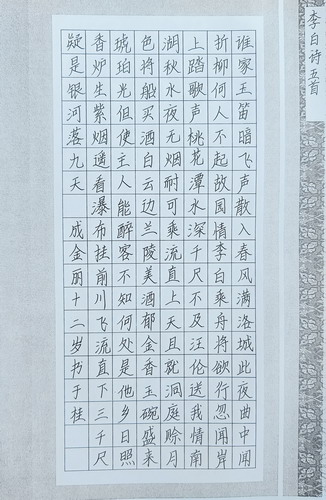 李白诗五首
谁家玉笛暗飞声散入春风满洛城此夜曲中闻
折柳何人不起故园情李白乘舟将欲行忽闻岸
上踏歌声桃花潭水深千尺不及汪伦送我情南
湖秋水夜无烟耐可乘流直上天且就洞庭赊月
色将船买酒白云边兰陵美酒郁金香玉碗盛来
琥珀光但使主人能醉客不知何处是他乡日照
香炉生紫烟遥看瀑布挂前川飞流直下三千尺
疑是银河落九天 成金丽十二岁书于桂